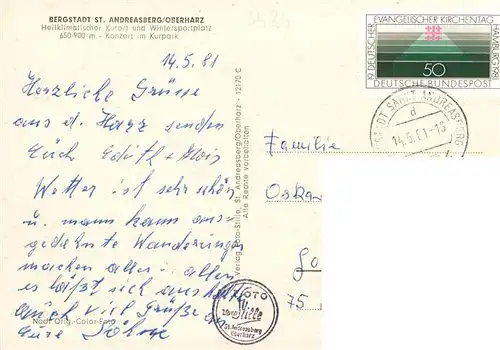 BERGSTADT ST. ANDREASBERG/OBERHARZ
Heilklimatischer Kurort und Wintersportplatz
650-900 m - Konzert im Kurpark
14.5.81
Herzliche Grüsse
aus d. Harz senden
Euch Edith + Alois
Wetter ist sehr schön
u. mann kann aus-
gedehnte Wanderungen
machen alles in allen
es läßt sich aushalten
auch viel Grüße an
Eure Söhne
Nach Orig.-Color-Foto
Verlag Foto-Stille, St. Andreasberg/Oberharz - 12170 C
Alle Rechte vorbehalten
19. DEUTSCHER EVANGELISCHER KIRCHENTAG HAMBURG 1981
50
DEUTSCHE BUNDESPOST
STADT SANKT ANDREASBERG
d
14.5.81-16
Familie
Oska
75
FOTO
Stille
St. Andreasberg
Oberharz